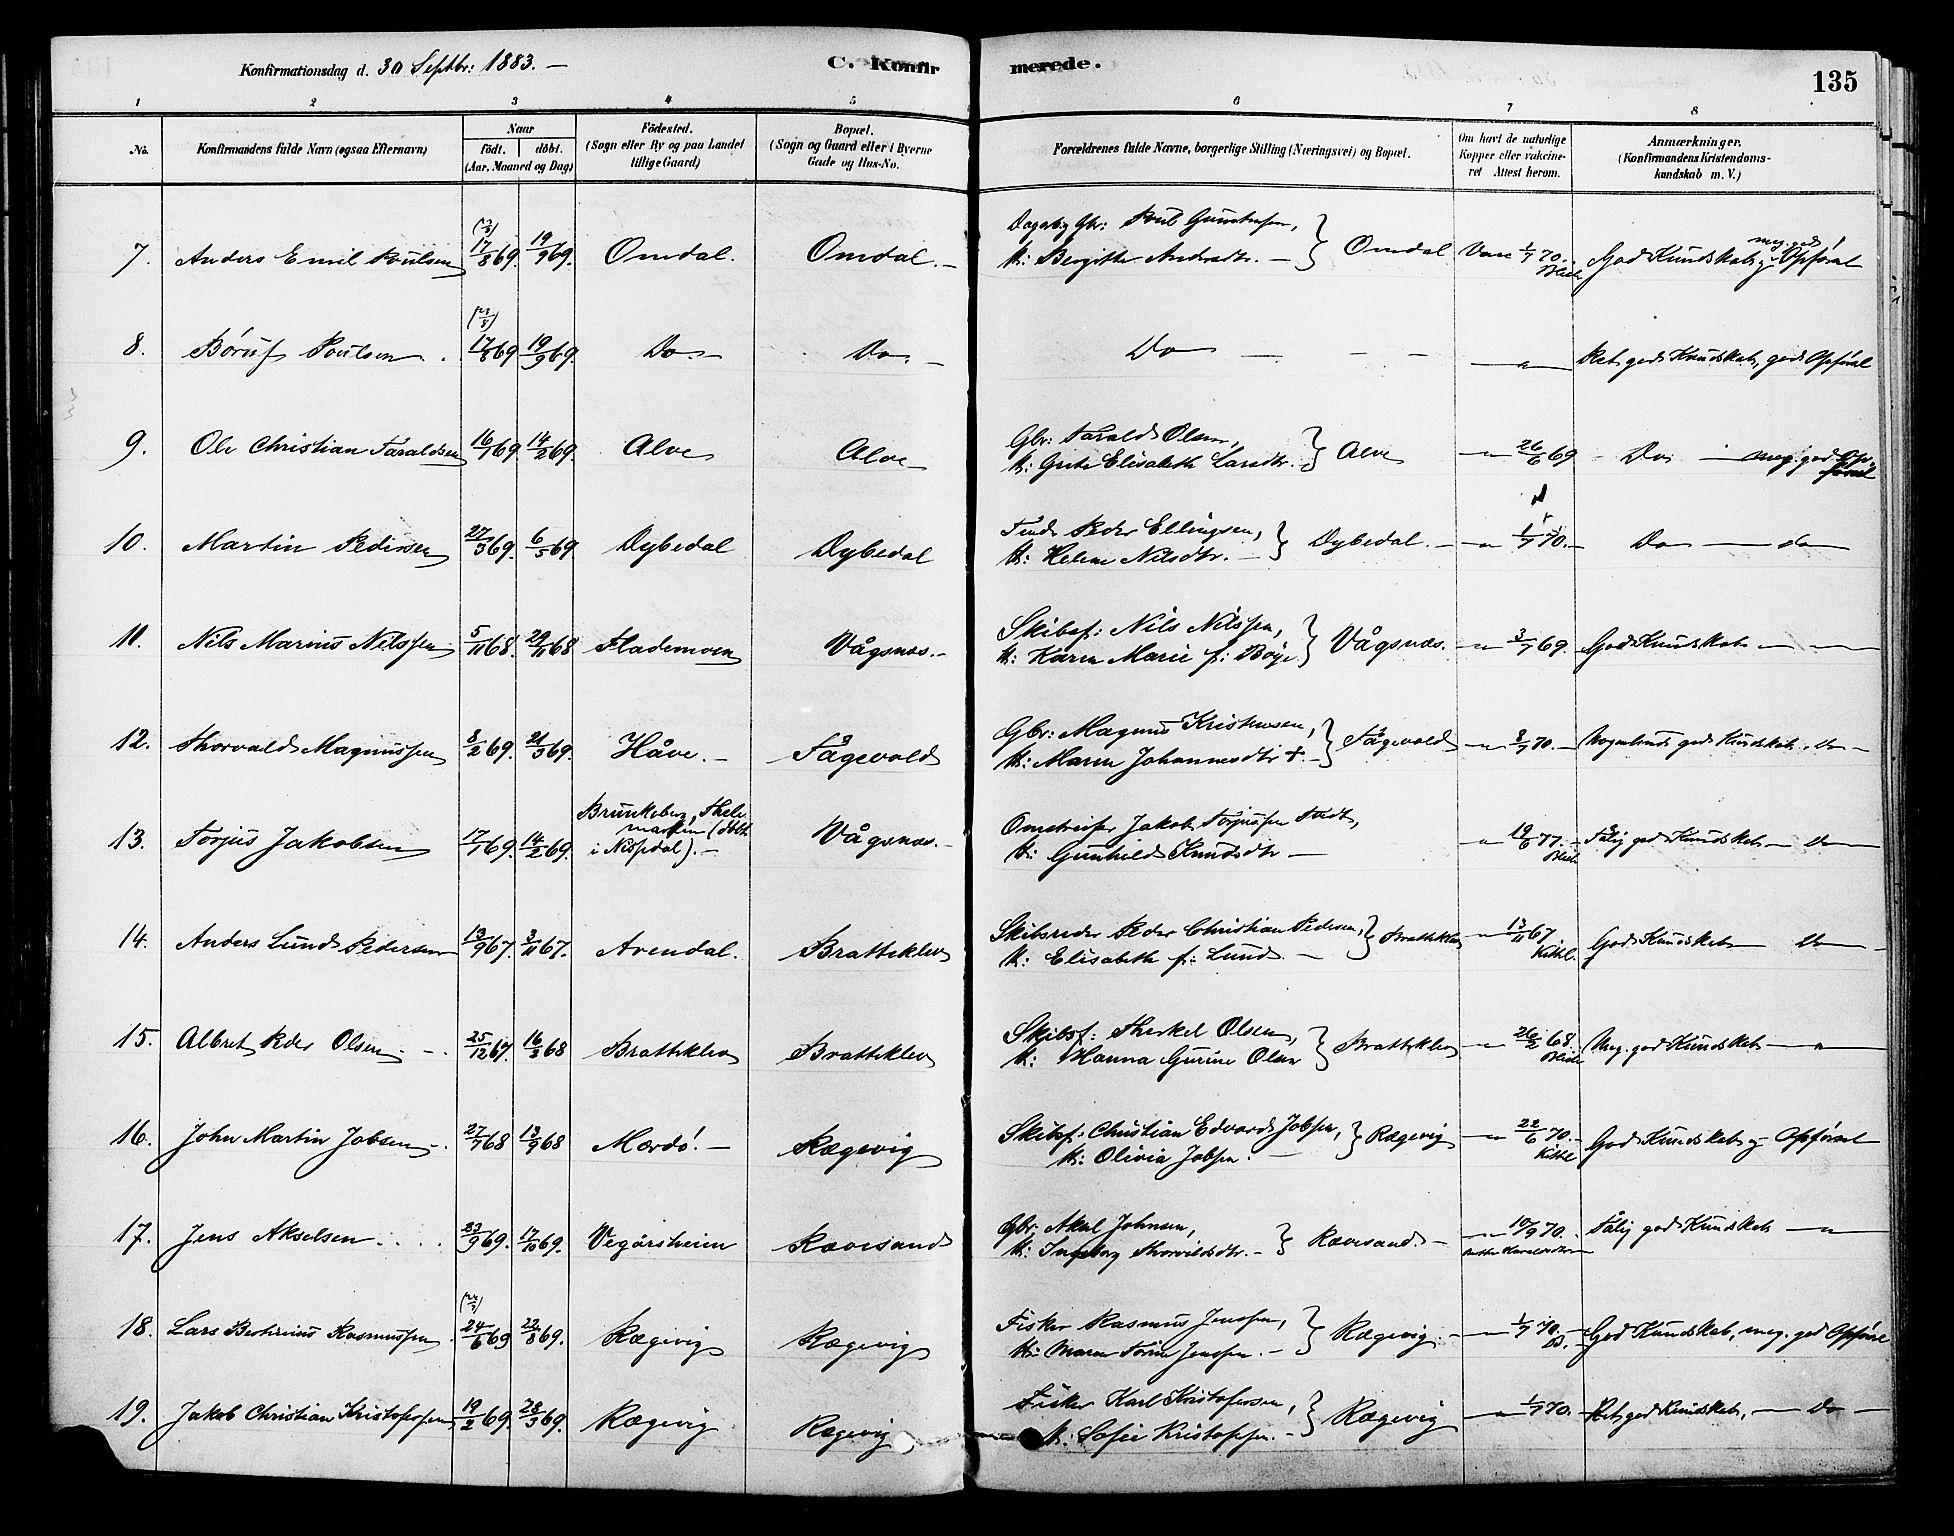 Konfirmationsdag d. 30 Septbr: 1883. —
C. Konfirmerede.
135
1 2 3 4 5 6 7 8
No.
Konfirmandens fulde Navn (ogsaa Efternavn)
Naar
födt. döbt.
(Aar, Maaned og Dag)
Födested.
(Sogn eller By og paa Landet
tillige Gaard)
Bopæl.
(Sogn og Gaard eller i Byerne
Gade og Hus-No.
Forældrenes fulde Navne, borgerlige Stilling (Næringsvei) og Bopæl.
Om havt de naturlige
Kopper eller vakcine-
ret Attest herom.
Anmærkninger.
(Konfirmandens Kristendoms-
kundskab m. V.)
7. Anders Emil Poulsen 17/8 69. 19/9 69. Omdal. Omdal. —
Gbr: Poul
k: Birgitte Andrsdtr. — } Omdal Vacc 1/7 70. God Kundskab, meg. god Opförsel
8. Poulsen 17/8 69 19/9 69. Do — Do. —
Do — — — Ret god Kundskab, god Opförsel
9. Ole Christian Taraldsen 16/1 69. 14/2 69. Alve Alve
Gbr: Tarald Olsen,
k: Grete Elisabeth Larsdtr. } Alve — 26/6 69 — Do. — meg. god Opförsel
10. Martin Pedersen 27/3 69. 6/5 69 Dybedal Dybedal
Peder Ellingsen,
k: Helene Nilsdtr. — } Dybedal. — 1/7 70. — Do — do
11. Nils Marius Nilssen 5/11 68. 29/11 68 Flademoen Vågsnæs. —
Skibsf: Nils Nilssen,
k: Karen Marie f: Böye } Vågsnæs. — 3/7 69. God Kundskab — —
12. Thorvald Magnussen 8/2 69. 21/3 69. Håve. — Fågevold
Gbr: Magnus Kristensen,
k: Maren Johannesdtr +. — } Fågevold — 8/7 70. — Nogenlunde god Kundskab. Do —
13. Torjus Jakobsen 17/1 69. 14/2 69. Brunkeberg, Thele-
marken (döbt
i Nissedal). — Vågsnæs. —
Omstreifer Jakob Torjussen
k: Gunhild Knudsdtr — 19/6 77. — Tålig god Kundskab — Do
14. Anders Lund Pedersen 13/9 67. 3/11 67. Arendal. Bratteklev
Skibsreder Peder Christian Pedersen,
k: Elisabeth f: Lund. — } Bratteklev — 13/11 67 Kittel. God Kundskab — Do —
15. Albret Peder Olsen. — 25/12 67. 16/3 68 Bratteklev Bratteklev
Skibsf: Therkel Olsen,
k: Hanna Gurine Olsen } Bratteklev — 26/2 68. Meg. god Kundskab —
16. John Martin Jobsen — 27/7 68 13/9 68 Mærdö! — Rægevig
Skibsf: Christian Edvard Jobsen,
k: Olivia Jobsen. } Rægevig — 22/6 70. Kittel God Kundskab og Opförsel
17. Jens Akselsen 23/9 69. 17/10 69. Vegårsheien Rævesand
Gbr: Aksel Johnsen,
k: Ingeborg Thorvildsdtr. — } Rævesand. — 10/9 70. Tålig god Kundskab —
18. Lars Rasmussen 24/6 69 22/8 69. Rægevig Rægevig
Fisker Rasmus Jenssen,
k: Maren Jenssen. — } Rægevig. — 1/7 70. God Kundskab, meg. god Opförsel
19. Jakob Christian Kristofersen 19/2 69. 28/3 69. Rægevig Rægevig
Fisker Karl Kristofersen,
k: Sofie Kristofersen. — } Rægevig — 1/7 70. Ret god Kundskab, — Do —